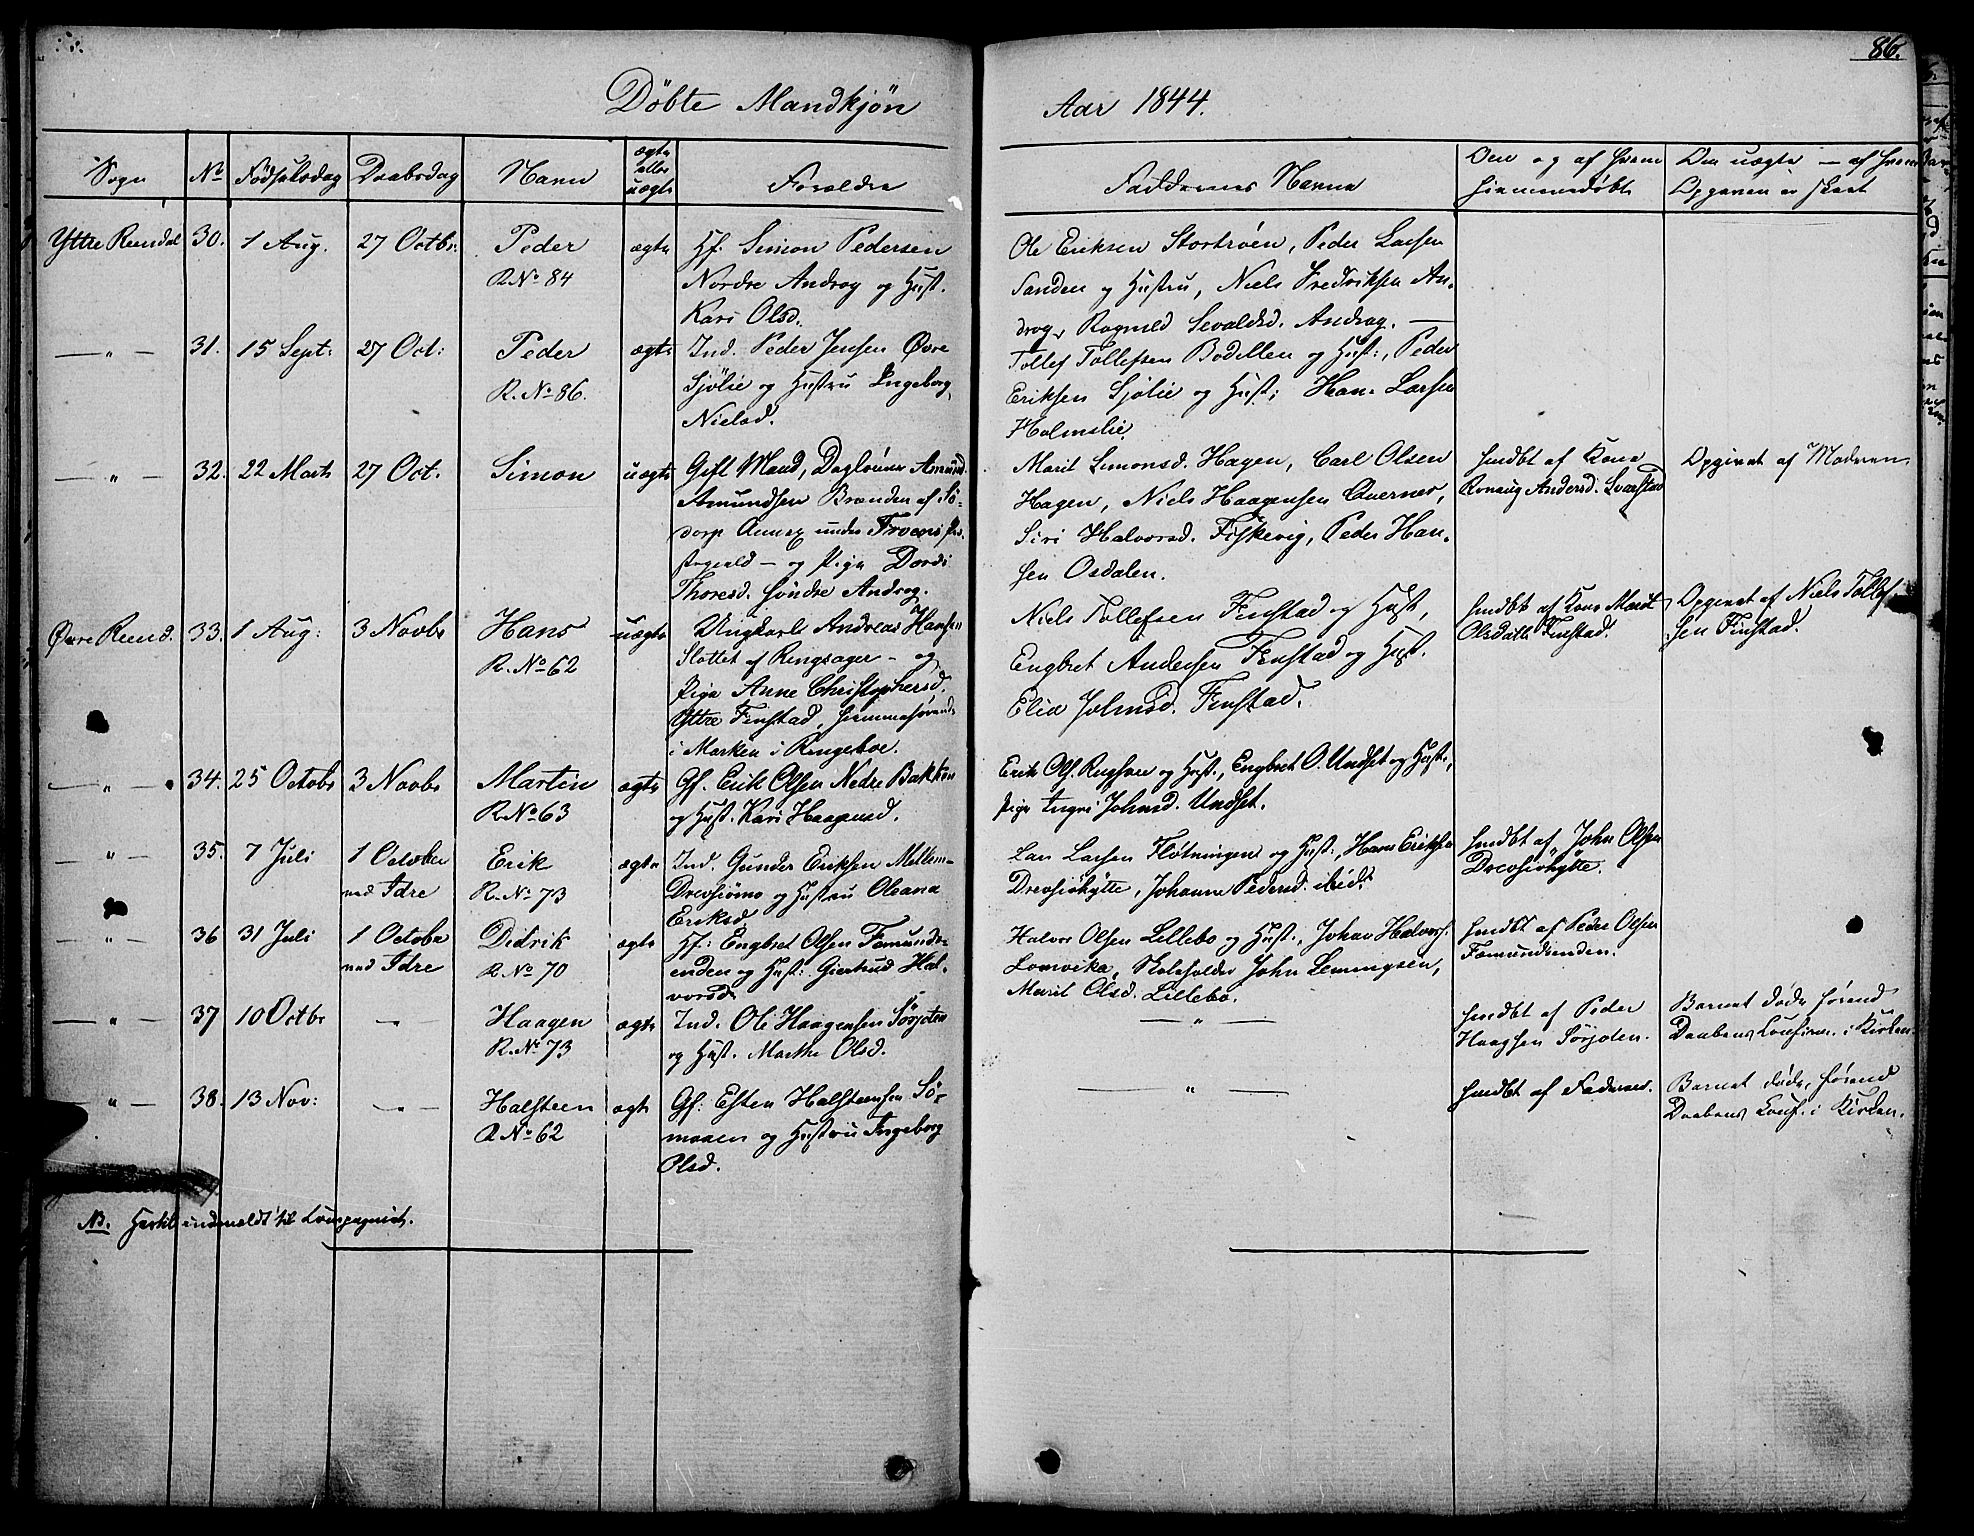 86.
Döbte Mandkjön
Aar 1844.
Sogn
No
Födselsdag
Daabsdag
Navn
ægte
eller
uægte
Forældre
Faddernes Navne
Den og af hvem
hiemmedøbt
Om uægte — af hvem
Opgaven er skeet
Yttre Rendal
30.
1 Aug.
27 Octbr.
Peder
R.No 84
ægte
Gf. Simon Pedersen
Nordre Andrag og Hust.
Kari Olsd.
Ole Eriksen Stortröen, Peder Larsen
Sanden og Hustru, Niels Fredriksen An-
drag, Ragnild Sevaldsd. Andrag. —
— " —
31.
15 Sept:
27 Oct:
Peder
R.No 86.
ægte
Ind. Peder Jensen Øvre
Sjölie og Hustru Ingeborg
Nielsd.
Tollef Tollefsen Bodillen og Hust:, Peder
Eriksen Sjölie og Hust; Hans Larsen
Holmslie.
— " —
32.
22 Marts
27 Oct.
Simon
uægte
Gift Mand, Dagleiner Amund
Amundsen Brenden af Sö-
dorp Annex under Froens Præ-
stegield — og Pige Dordi
Thoresd. söndre Andrag.
Marit Simonsd. Hagen, Carl Olsen
Hagen, Niels Haagensen Qvernes,
Siri Halvorsd. Fiskevig, Peder Han-
sen Osdalen.
hmdbt af Kone
Rønaug Andersd. Svarstad
Opgivet af Moderen.
Øvre Rend.
33.
1 Aug:
3 Novbr
Hans
R.No 62
uægte
Ungkarl Andreas Hansen
Slottet af Ringsager — og
Pige Anne Christophersd.
Yttre Finstad, hiemmehørende
i Marken i Ringeboe.
Niels Tollefsen Finstad og Hust,
Engbret Andersen Finstad og Hust.
Elie Johnsd. Finstad.
hmdbt af Kone Marit
Olsdatt. Finstad.
Opgivet af Niels Tollef-
sen Finstad.
— " —
34.
25 Octobr
3 Novbr
Martin
R.No 63
ægte
Gf. Erik Olsen Nedre Bakken
og Hust. Kari Haagensd.
Erik Ols. Rugsveen og Hust., Engbret O. Undset og Hust.,
Pige Ingri Johnsd. Undset.
— " —
35.
7 Juli
1 October
ved Idre
Erik
R.No 73
ægte
Ind. Gunder Eriksen Mellem-
Drevsiömo og Hustru Oleana
Eriksd.
Lars Larsen Flötningen og Hust:, Hans Eriksen
Drevsiöhytte, Johanne Pedersd. ibid.
hmdbt af John Olsen
Drevsiøhytte.
— " —
36
31 Juli
1 Octobr
ved Idre
Didrik
R.No 70
ægte
Hf: Engbret Olsen Fæmunds-
enden og Hust: Giertrud Hal-
vorsd.
Halvor Olsen Lillebo og Hust:, Johan Halvors.
Lomvika, Skoleholder John Lemingsen,
Marit Olsd. Lillebo.
hmdbt af Peder Olsen
Fæmundsenden.
— " —
37
10 Octbr
— " —
Haagen
R.No 73
ægte
Ind. Ole Haagensen Sörjoten
og Hust. Marthe Olsd.
— " —
hmdbt af Peder
Haagsen Sörjoten.
Barnet døde førend
Daabens Confirm. i Kirken.
— " —
38.
13 Nov:
— " —
Halsteen
R.No 62
ægte
Gf: Esten Halsteensen Sö-
moaen og Hustru Ingeborg
Olsd.
— " —
hmdbt af Faderen.
Barnet døde, førend
Daabens Conf. i Kirken.
NB. Hertil indmeldt til Compagniet.